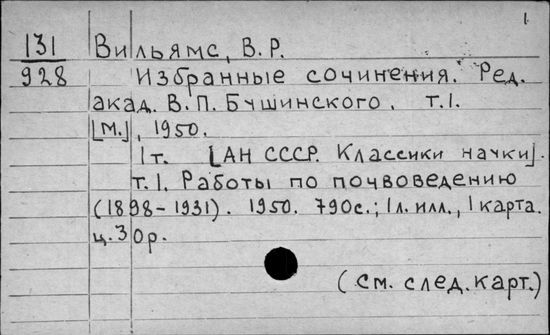 1
131 Вильямс, В.Р.
928 Избранные сочинения. Ред.
акад. В.П. Бушинского. т.1.
[м.], 1950.
1т. [АН СССР. Классики науки].
т.1. Работы по почвоведению
(1898-1931). 1950. 790с.; 1 л. илл., 1 карта.
ц. 30р.
(см. след. карт.)